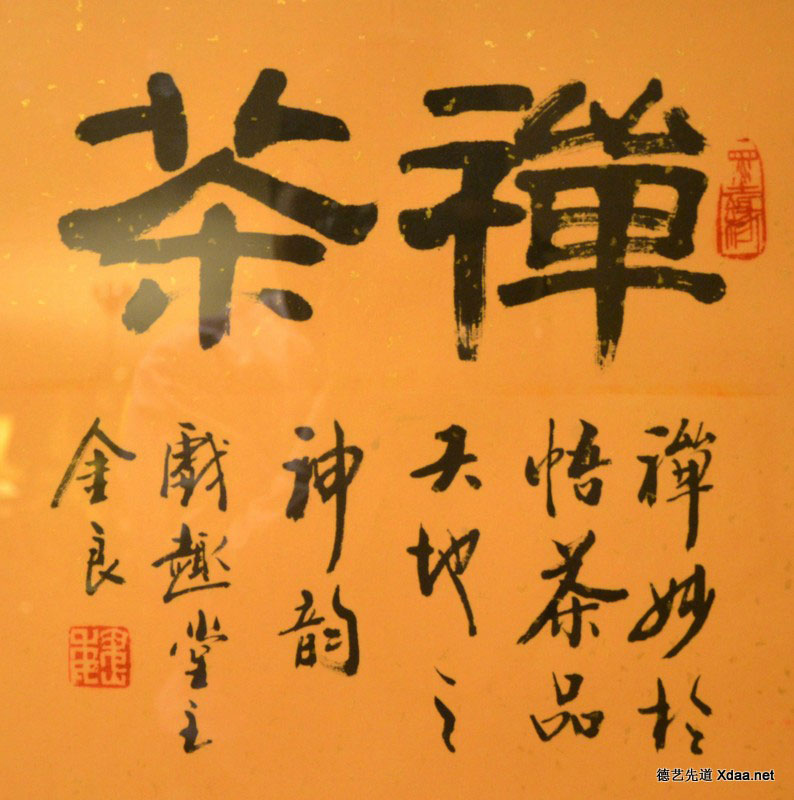 禪茶
禪妙於
悟茶品
天地之
神韵
戲趣堂主
金良
德艺先道 Xdaa.net